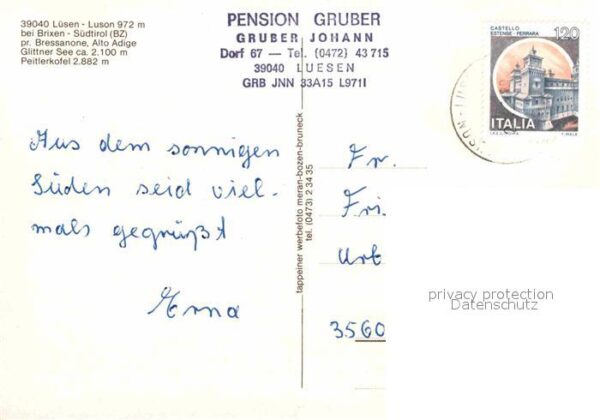 39040 Lüsen - Luson 972 m
bei Brixen - Südtirol (BZ)
pr. Bressanone, Alto Adige
Glittner See ca. 2.100 m
Peitlerkofel 2.882 m
PENSION GRUBER
GRUBER JOHANN
Dorf 67 — Tel. (0472) 43 715
39040 LUESEN
GRB JNN 33A15 L971I
CASTELLO
ESTENSE - FERRARA
120
ITALIA
Aus dem sonnigen
Süden seid viel-
mals gegrüßt
Erna
tappeiner werbefoto meran-bozen-bruneck
tel. (0473) 2 34 35
Fr.
Fri
Urb
3560
privacy protection
Datenschutz